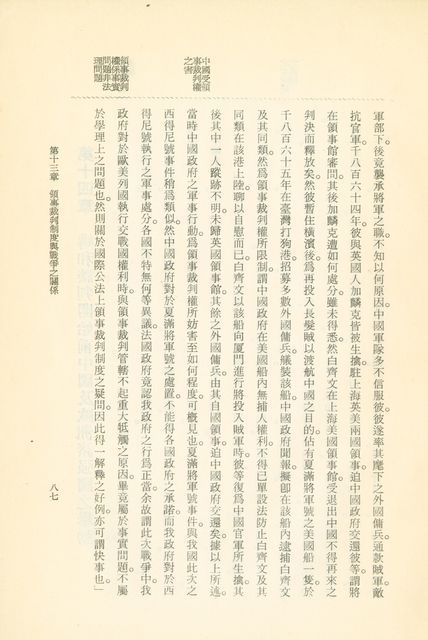 軍部下。後竟襲承將軍之職。不知以何原因。中國軍隊多不信服彼。彼遂率其麾下之外國傭兵。通款賊軍。敵
抗官軍。千八百六十四年。彼與英國人加麟克皆被生擒。駐上海英美兩國領事。迫中國政府交還彼等。謂將
在領事館審問。其後加麟克遭如何處分。雖未得悉。然白齊文在上海美國領事館。受退出中國不得再來之
判決而釋放矣。然彼暫住橫濱。後爲再投入長髮賊。以渡航中國之目的。佔有夏滿將軍號之美國船一隻。於
千八百六十五年在臺灣打狗港招募多數外國傭兵。艤裝該船。中國政府聞報。擬卽在該船內逮捕白齊文
及其同類。然爲領事裁判權所限制。謂中國政府在美國船內無捕人權利。不得已單設法防止白齊文及其
同類在該港上陸。聊以自慰而已。白齊文以該船向厦門進行。將投入賊軍時。彼等復爲中國官軍所生擒。其
後其中一人。蹤跡不明。未歸英國領事館。其餘之外國傭兵。由其自國領事迫中國政府交還矣。據以上所述。
當時中國政府之軍事行動。爲領事裁判權所妨害。至如何程度。可概見也。夏滿將軍號事件。與我國此次之
西得尼號事件稍爲類似。然中國政府對於夏滿將軍號之處置。不能得各國政府之承諾。而我政府對於西
得尼號執行之軍事處分。各國不特無何等異議。法國政府竟認我政府之行爲正當。余故謂此次戰爭中。我
政府對於歐美列國執行交戰國權利時。與領事裁判管轄不起重大牴觸之原因。畢竟屬於事實問題。不屬
於學理上之問題也。然則關於國際公法上領事裁判制度之疑問。因此得一解釋之好例。亦可謂快事也」
中國受領
事裁判權
之害
領事裁判
權係事實
問題非法
理問題
第十三章 領事裁判制度與戰爭之關係
八七